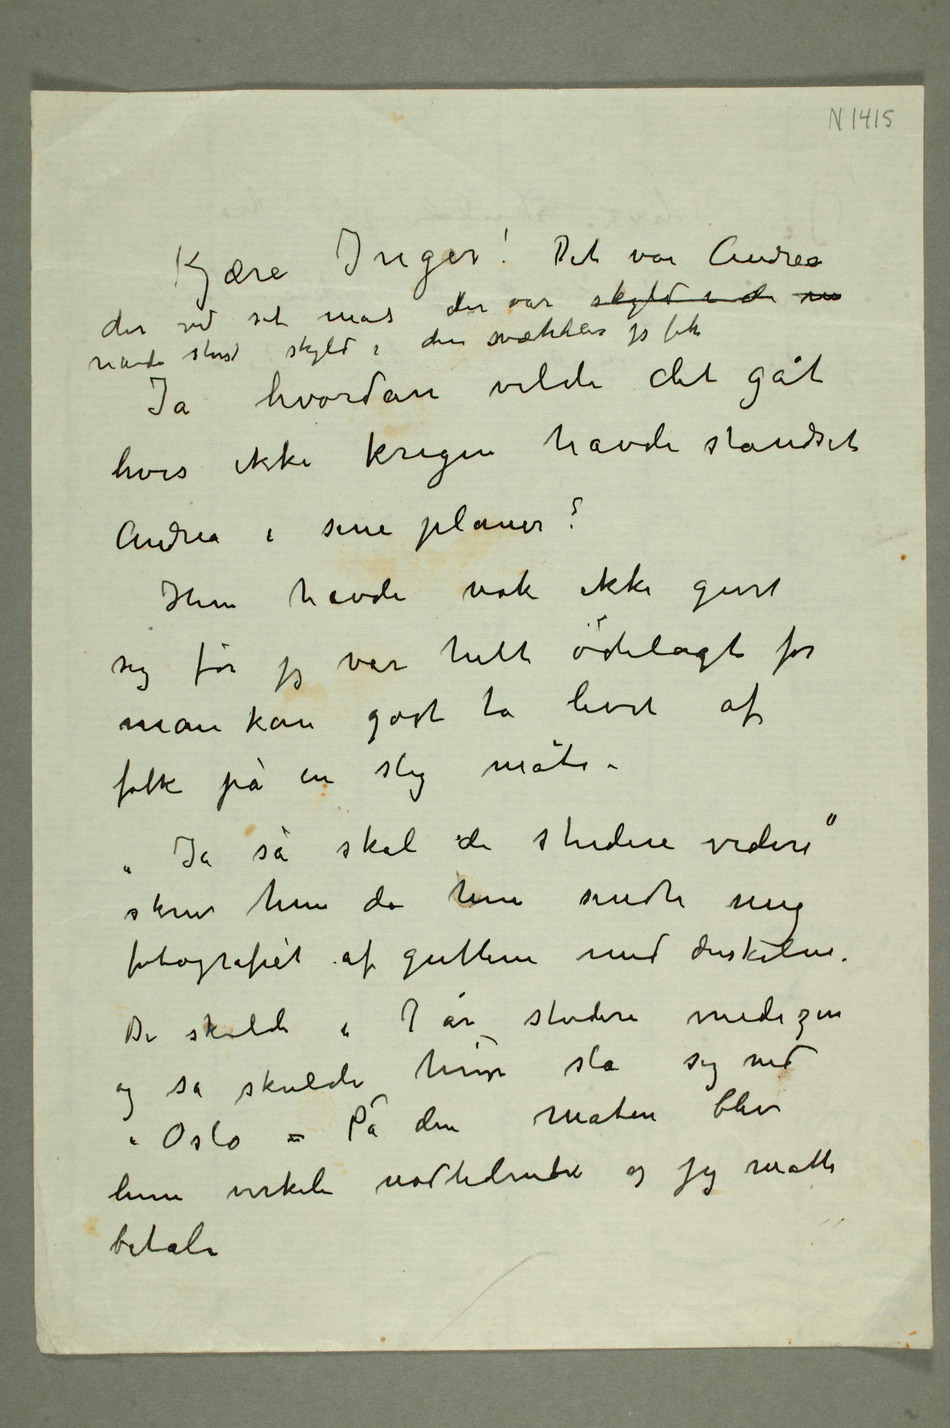 N 1415
Kjære Inger! Det var Andrea
der ved sit mas der var skyld i de
havde størst skyld i den svækkelse jeg fik
Ja hvordan vilde det gåt
hvis ikke krigen havde standset
Andrea i sine planer?
Hun havde nok ikke givet
sig før jeg var helt ödelagt for
man kan godt ta livet af
folk på en slig måte.
„Ja så skal de studere videre“
skrev hun da hun sendte mig
fotografiet af guttene med ønskelue.
De skulde i 7 år studere medizin
og så skulde hun slå sig ned
i Oslo – På den måten blev
hun virkeli nødlidende og jeg måtte
betale